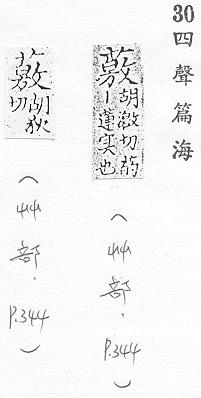 30四聲篇海
薂胡激切菂丨蓮实也
(艸部.P.344)
薂胡狄切
(艸部.P.344)